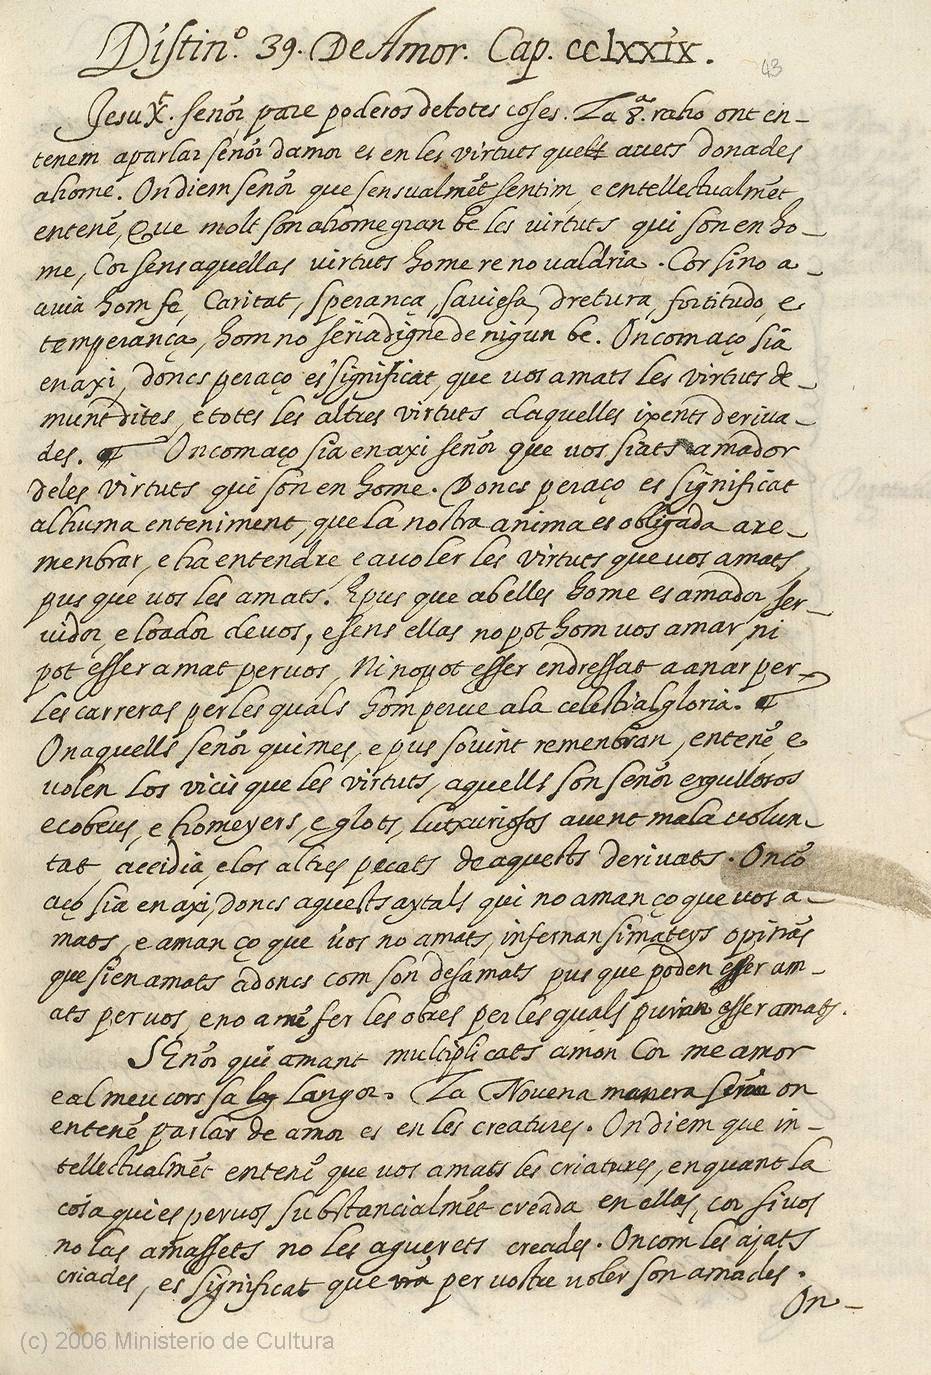 Distin.º 39. De Amor. Cap. cclxxix.
43
Jesu Xt. señór pare poderos de totes coses. La 8.ª raho ont en-
tenem aparlar señór damor es en les virtuts que avets donades
ahome. On diem señór que sensualmẽt sentim, e entellectualmẽt
entenẽ, Que molt son ahome gran be les virtuts qui son en ho-
me, Cor sens aquellas virtuts home re no valdria. Cor si no a-
avia hom fe, Caritat, sperança, saviesa, dretura, fortitudo, e
temperança, hom no seria digne de nigun be. On com aço sia
en axi, doncs per aço es significat que vos amats les virtuts de-
munt dites, e totes les altres virtuts daquelles ixents deriva-
des. On com aço sia en axi señór que vos siats amador
de les virtuts qui son en home. Doncs per aço es significat
al huma enteniment, que la nostra anima es obligada a re-
menbrar, e ha entendre e a voler les virtuts que vos amats,
pus que vos les amats. E pus que ab elles home es amador ser-
vidor, e loador de vos, e sens ellas no pot hom vos amar, ni
pot esser amat per vos, Ni no pot esser endressat a anar per
les carreras per les quals hom perve a la celestial gloria.
On aquells señór qui mes, e pus sovint remenbran, entenẽ e
volen los vicis que les virtuts, aquells son señór ergullosos
e cobeus, e homeyers, e glots, lutxuriosos avent mala volun-
tat, accidia, e los altres pecats de aquests derivats. On cõ
aço sia en axi, doncs aquests aytals qui no aman ço que vos a-
mats, e aman ço que vos no amats, infernan si mateys opinãs
que sien amats adoncs com son desamats pus que poden esser am-
ats per vos, e no amẽ fer les obres per les quals puixan esser amats.
SEñór qui amant multiplicats amor Cor me amor
e al meu cors sa langor. La Novena manera señor on
entenẽ parlar de amor es en les creatures. On diem que in-
tellectualmẽt entenẽ que vos amats les criatures, en quant la
cosa qui es per vos substancialmẽt creada en ellas, cor si vos
no las amassets no les aguerets creades. On com les ajats
criades, es significat que per vostre voler son amades.
On-
(c) 2006 Ministerio de Cultura